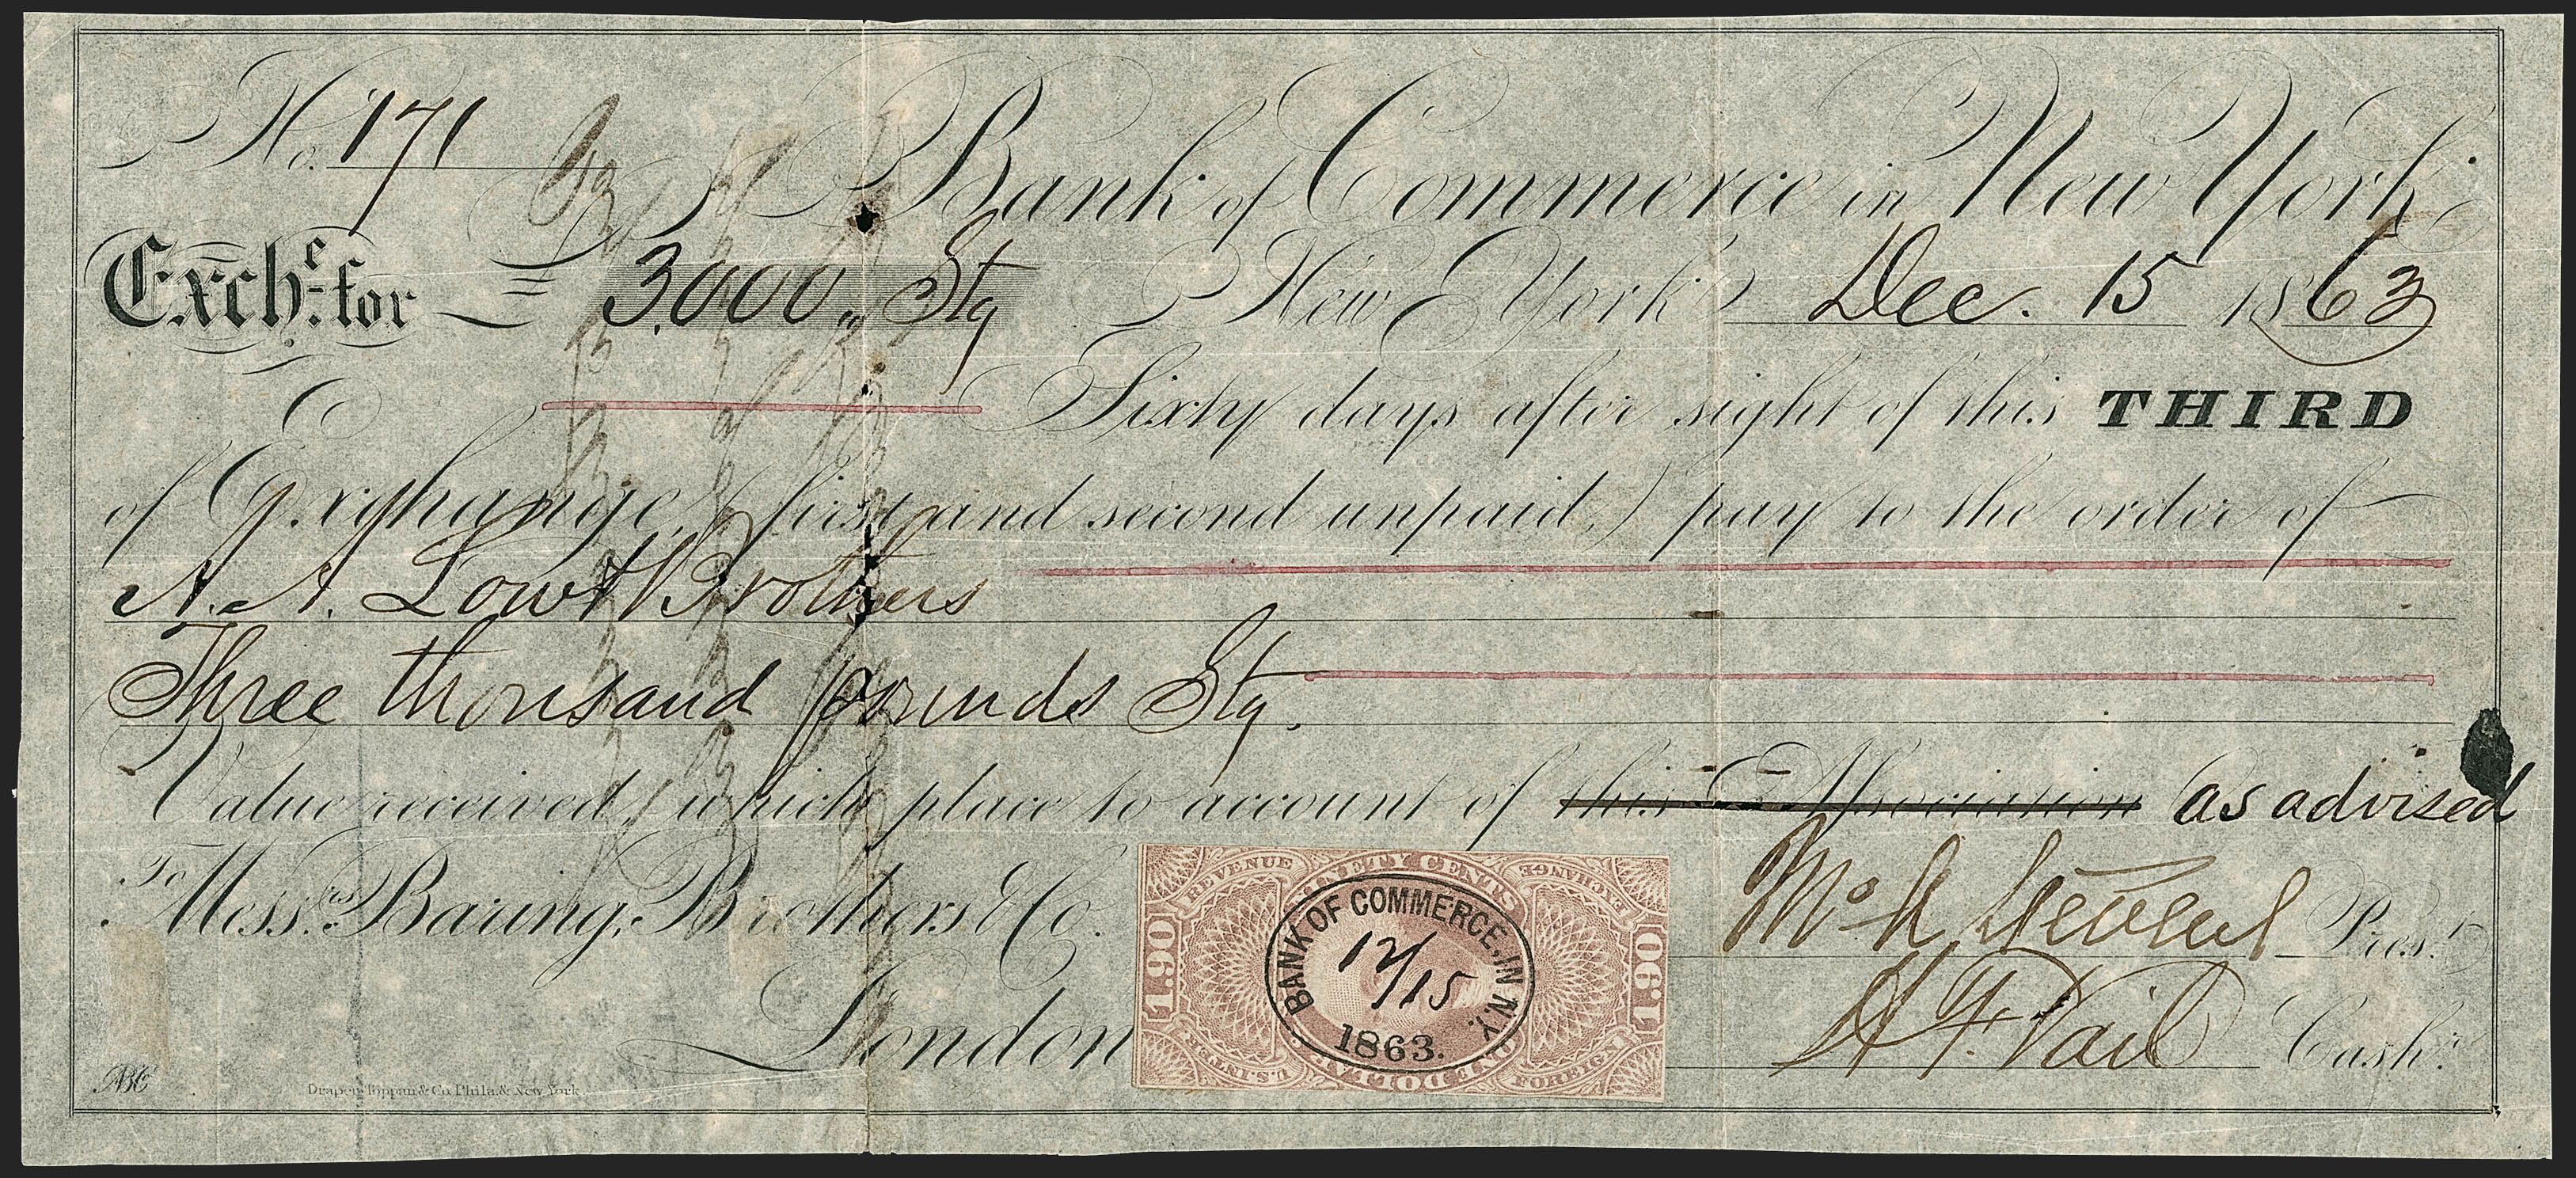 No. 171
Bank of Commerce in New York
Exchᵉ. for = 3,000,, Stg New York Dec. 15 1863
Sixty days after sight of this THIRD
of Exchange, (first and second unpaid,) pay to the order of
A. A. Low & Brothers
Three thousand pounds Stg.
Value received, which place to account of this Association as advised
To Messʳˢ. Baring, Brothers & Co.
London
U.S. INTER. REVENUE
NINETY CENTS
FOREIGN EXCHANGE
ONE DOLLAR
1.90
1.90
BANK OF COMMERCE, IN N.Y.
12/15
1863.
Presᵗ.
H. F. Vail Cashʳ.
ABCº
Draper, Toppan & Co. Phila. & New York